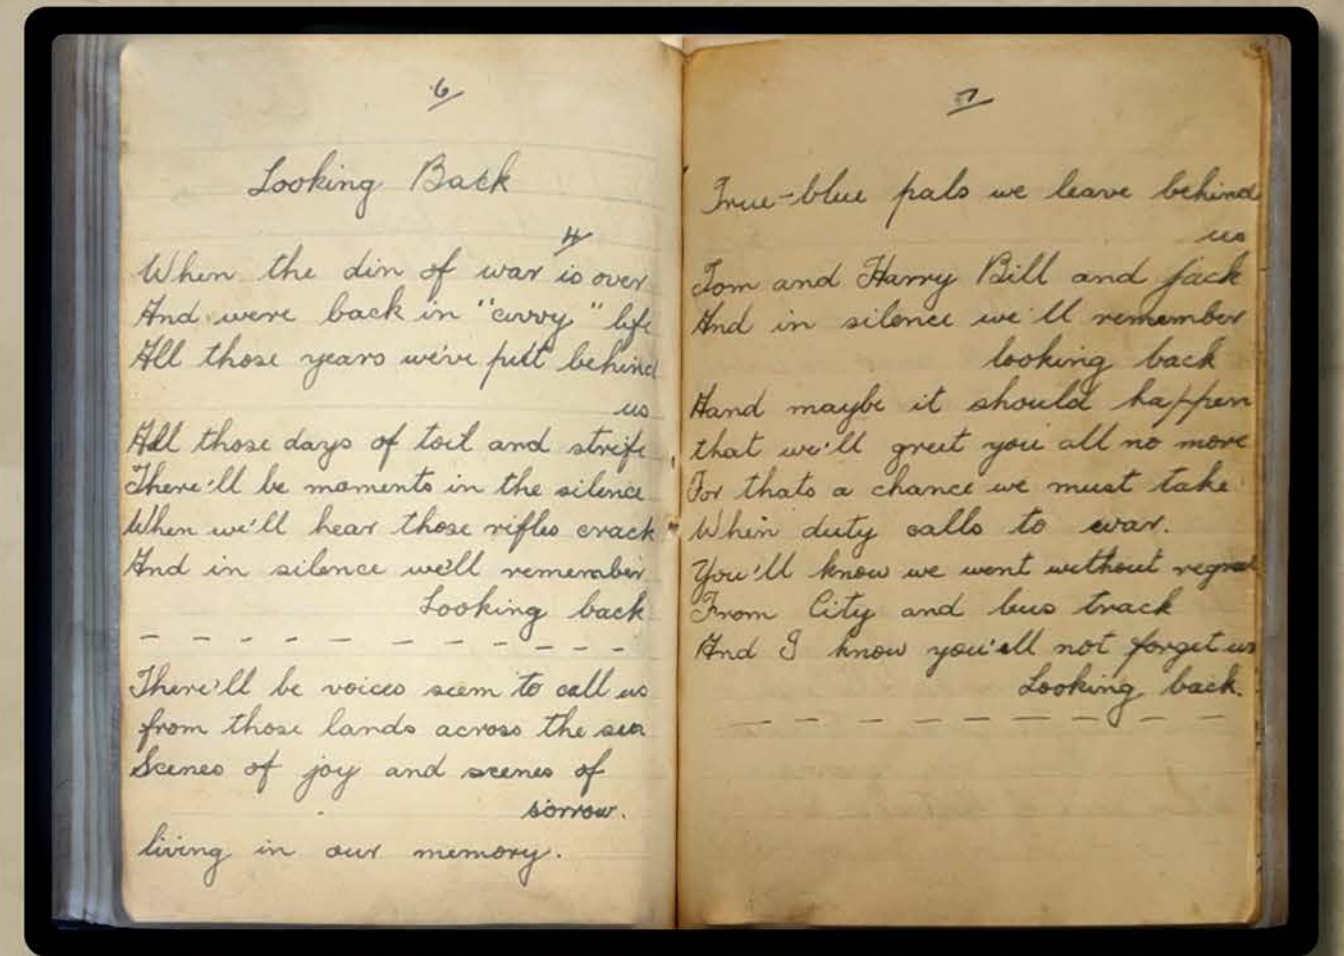 6
Looking Back
4
When the din of war is over
And were back in "civvy" life
All those years we've putt behind
us
All those days of toil and strife
There'll be moments in the silence
When we'll hear those rifles crack
And in silence we'll remember
Looking back
There'll be voices seem to call us
from those lands across the sea
Scenes of joy and scenes of
sorrow.
living in our memory.
7
True-blue pals we leave behind
us
Tom and Harry Bill and Jack
And in silence we'll remember
looking back
Hand maybe it should happen
that we'll greet you all no more
For thats a chance we must take
When duty calls to war.
You'll know we went without regret
From City and bus track
And I know you'ell not forget us
Looking back.